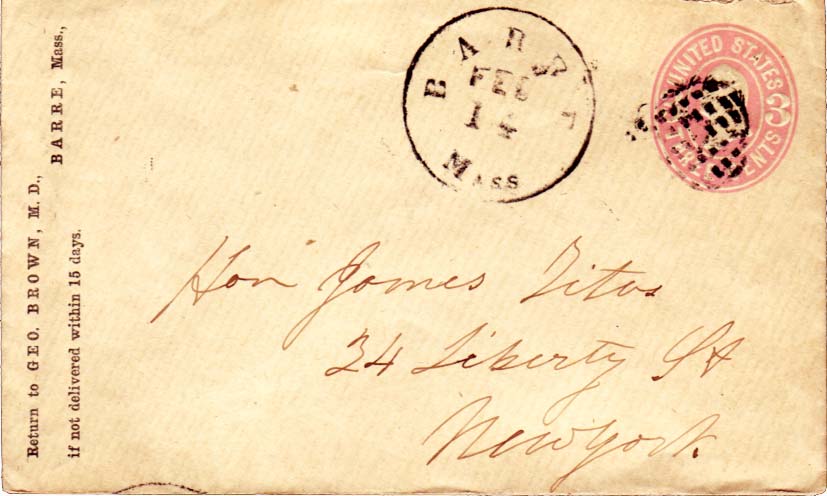 Return to GEO. BROWN, M. D.,
BARRE, Mass.,
if not delivered within 15 days.
BARRE
FEB
14
MASS
UNITED STATES
3
THREE CENTS
Hon James Titus
34 Liberty St
New York.